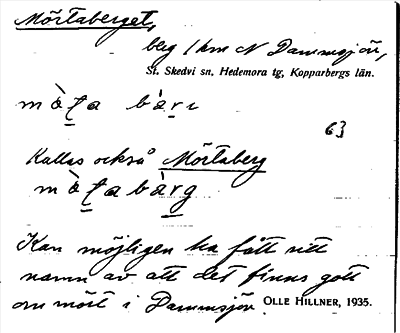 Mörtaberget,
berg 1 km N Dammsjön,
St. Skedvi sn, Hedemora tg, Kopparbergs län.
63
Kallas också Mörtaberg
Kan möjligen ha fått sitt
namn av att det finns gott
om mört i Dammsjön. OLLE HILLNER, 1935.